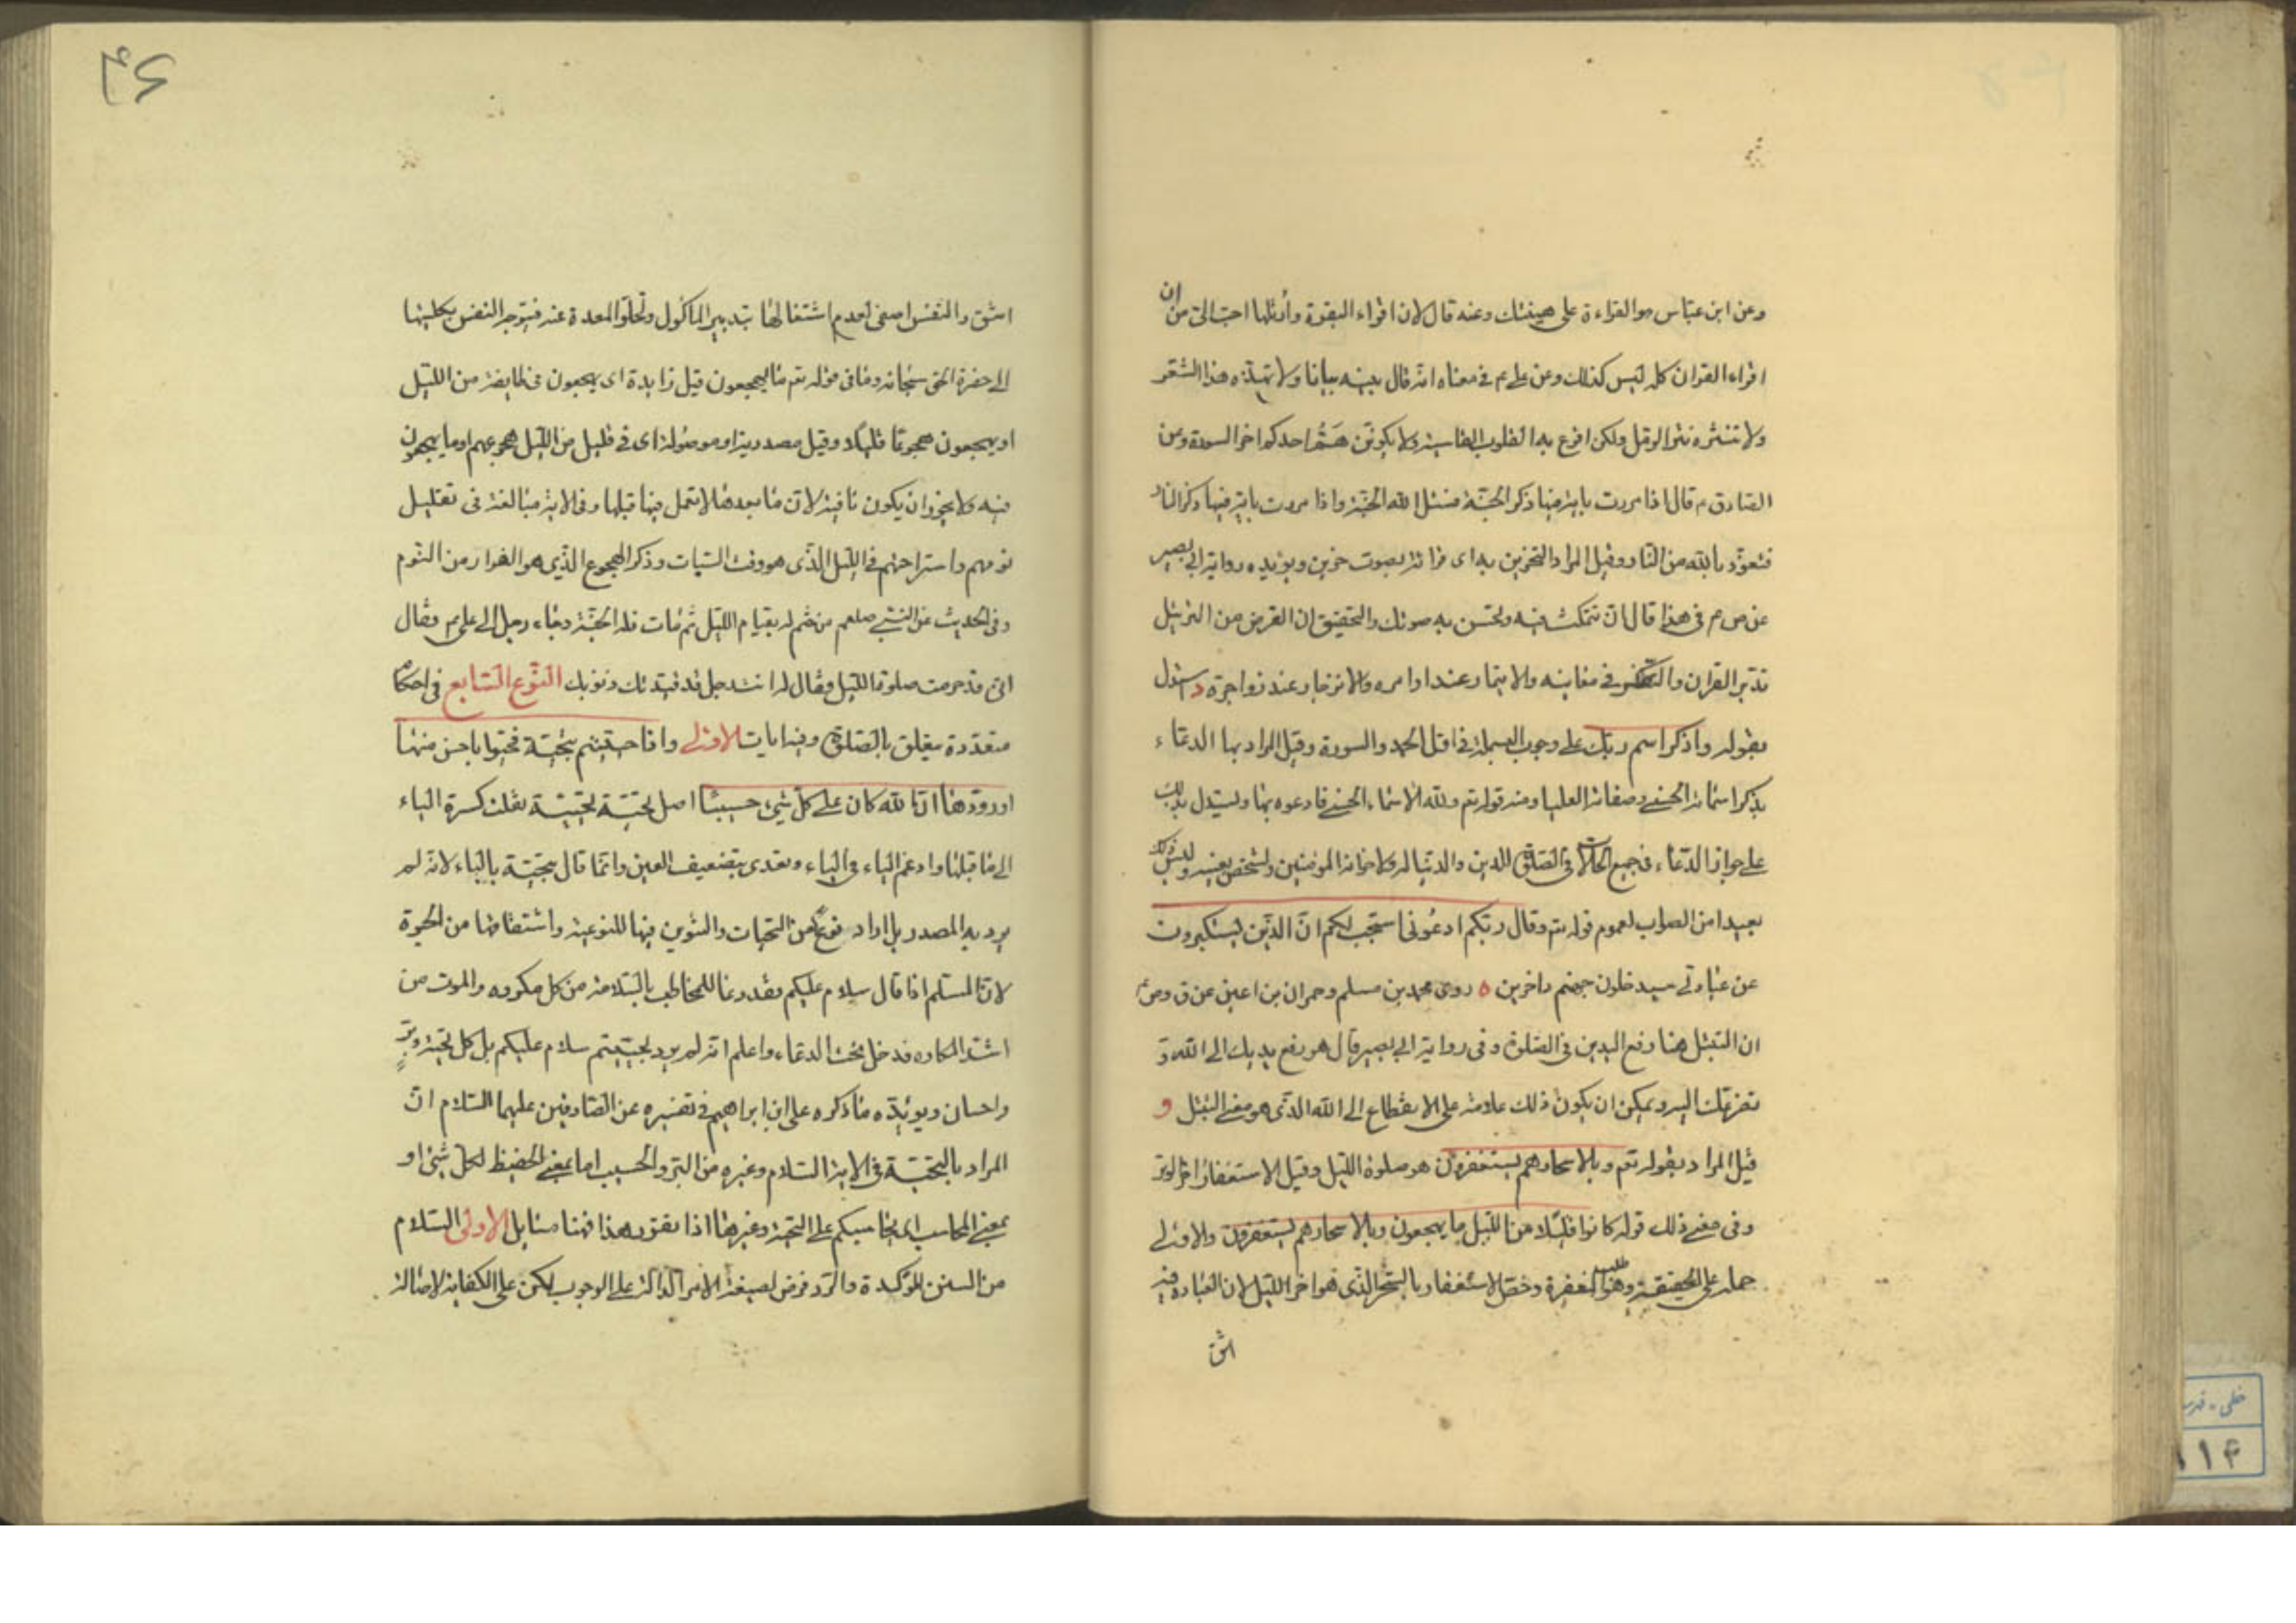 وعن ابن عبّاس هو القراءة على هينتك وعنه قال لان اقراء البقرة وأرتلها احبّ الىّ من ان
اقراء القران كله ليس كذلك وعن على ع م فى معناه انه قال بينه بيانا ولا تهذّه هذّ الشعر
ولا تنثره نثر الرمل ولكن افزع به القلوب القاسية ولا يكونّن همّ احدكم اخر السورة وعن
الصادق م قال اذا مررت باية فيها ذكر الجنّة فسئل الله الجنّة واذا مررت باية فيها ذكر النار
فتعوّذ بالله من النار وقيل المراد التحزين به اى قرائة بصوت حزين ويؤيده رواية ابى بصير
عن ص م فى هذا قال ان تتمكث فيه وتحسن به صوتك والتحقيق ان الغرض من الترتيل
تدبّر القران والتفكّر فى معانيه والايتمار عند اوامره والانزجار عند زواجره د استدل
بقوله واذكر اسم ربّك على وجوب البسملة فى اوّل الحمد والسورة وقيل المراد بها الدعاء
بذكر اسمائه الحسنى وصفاته العليا ومنه قوله تم ولله الاسماء الحسنى فادعوه بها ويستدل بذلك
على جواز الدعاء فى جميع الحالات فى الصلوة للدين والدنيا له ولاخوانه المؤمنين ولشخص بعينه وليس ذلك
بعيدا من الصواب لعموم قوله تم وقال ربّكم ادعونى استجب لكم انّ الذين يستكبرون
عن عبادتى سيدخلون جهنم داخرين ه روى محمد بن مسلم وحمران بن اعين عن ق وص م
ان التبتل هنا رفع اليدين فى الصلوة وفى رواية ابى بصير قال هو رفع يديك الى الله و
تضرعك اليه ويمكن ان يكون ذلك علامة على الانقطاع الى الله الذى هو معنى التبتل و
قيل المراد بقوله تعم وبالاسحار هم يستغفرون هو صلوة الليل وقيل الاستغفار اخر الوتر
وفى معنى ذلك قوله كانوا قليلا من الليل ما يهجعون وبالاسحار هم يستغفرون والاولى
حمله على الحقيقة وهو طلب المغفرة وخصّ الاستغفار بالسحر الذى هو اخر الليل لان العبادة فيه
اشق
اشق والنفس اصفى لعدم اشتغالها بتدبير الماكول وتخلّو المعدة عنه فتتوجه النفس بكليتها
الى حضرة الحق سبحانه وما فى قوله تم ما يهجعون قيل زايدة اى يهجعون فى طايفة من الليل
او يهجعون هجوعا قليلا وقيل مصدرية او موصولة اى فى قليل من الليل هجوعهم او ما يهجعون
فيه ولا يجوز ان يكون نافية لان ما بعدها لا يعمل فيما قبلها وفى الاية مبالغة فى تقليل
نومهم واستراحتهم فى الليل الذى هو وقت السبات وذكر الهجوع الذى هو الغرار من النوم
وفى الحديث عن النبى صلعم من ختم له بقيام الليل ثم مات فله الجنّة وجاء رجل الى على م وقال
انى قد حرمت صلوة الليل وقال له انت رجل قد قيدتك ذنوبك النّوع السّابع فى احكام
متعدّدة يتعلق بالصلوة وفيه ايات الاولى واذا حييتم بتحيّة فحيّوا باحسن منها
او ردّوها انّ الله كان على كلّ شئ حسيبا اصل تحيّة تحيية نقلت كسرة الياء
الى ما قبلها وادغم الياء فى الياء وتعدى بتضعيف العين وانما قال بتحيّة بالباء لانه لم
يرد به المصدر بل اراد نوعا من التحيات والتنوين فيها للنوعية واشتقاقها من الحيوة
لان المسلم اذا قال سلام عليكم فقد دعا للمخاطب بالسلامة من كل مكروه والموت من
اشدّ المكاره فدخل تحت الدعاء واعلم انه لم يرد بحييتم سلام عليكم بل كل تحية وبرّ
واحسان ويؤيّده ما ذكره على ابن ابراهيم فى تفسيره عن الصادقين عليهما السلام ان
المراد بالتحيّة فى الاية السلام وغيره من البرّ والحسيب اما بمعنى الحفيظ لكل شئ او
بمعنى المحاسب اى يحاسبكم على التحية وغيرها اذا تقرر هذا فهنا مسايل الاولى السلام
من السنن المؤكدة والرّد فرض لصيغة الامر الدالة على الوجوب لكن على الكفاية لاصالة